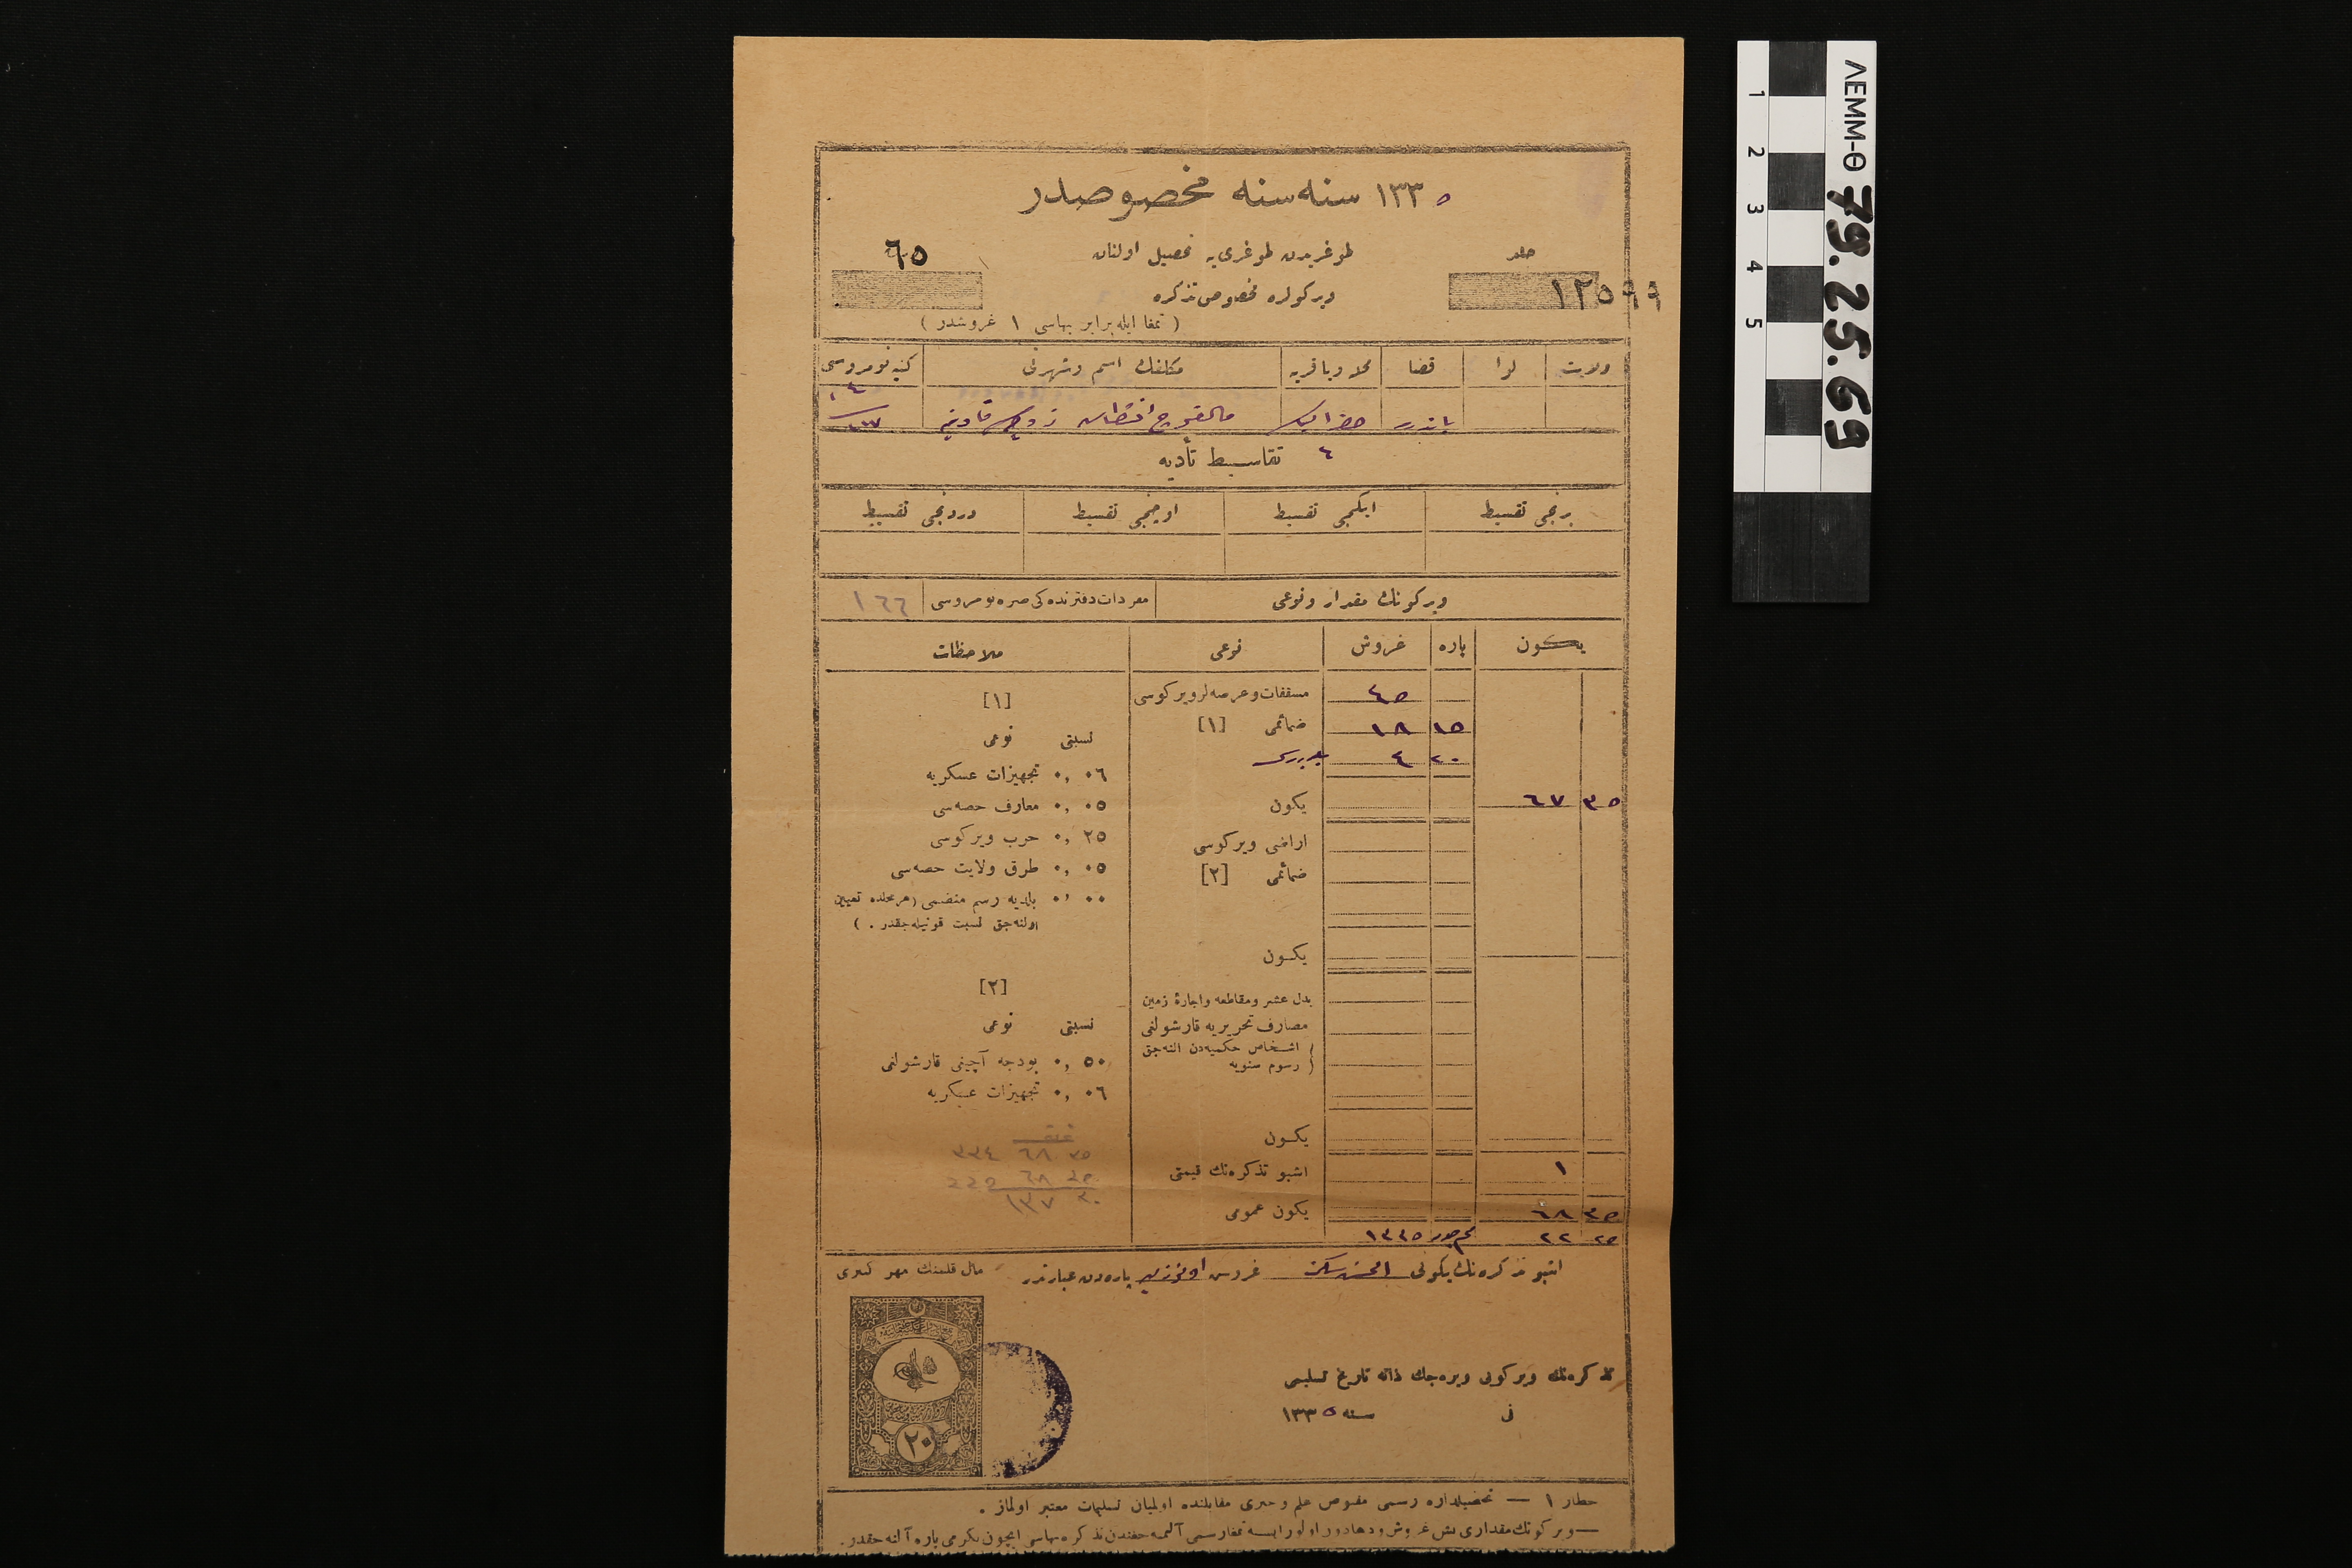 ١٣٣٥ سنه سنه مخصوصدر
جلد
١٢٥٩٩
٦٥
طوغریدن طوغری یه تحصیل اولنان
ویرکولره مخصوص تذکره
( تمغا ایله برابر بهاسی ١ غروشدر )
ولایت لوا قضا محله ویا قریه مکلفك اسم وشهرتی کنیه نومروسی
٤ تقاسیط تأدیه
برنجی تقسیط ایکنجی تقسیط اوچنجی تقسیط دردنجی تقسیط
ویرکونك مقدار ونوعی مفردات دفترنده کی صره نومروسی ١٦٦
یکون پاره غروش نوعی ملاحظات
مسقفات وعرصه لر ویرکوسی ٤٥
ضمائمی [١] ١٨ ١٥
٤ ٢٠
یکون ٦٧ ٣٥
اراضی ویرکوسی
ضمائمی [٢]
یکون
بدل عشر ومقاطعه واجارۀ زمین
مصارف تحریریه قارشولغی
( اشخاص حکمیه دن النه جق
( رسوم سنویه
یکون
اشبو تذکره نك قیمتی ١
یکون عمومی ٦٨ ٣٥
١٣٣٥ ٢٢ ٢٥
[١]
نسبتی نوعی
٠,٠٦ تجهیزات عسکریه
٠,٠٥ معارف حصه سی
٠,٢٥ حرب ویرکوسی
٠,٠٥ طرق ولایت حصه سی
٠,٠٠ بلدیه رسم منضمی (هر محلده تعیین
اولنه جق نسبت قونیله جقدر . )
[٢]
نسبتی نوعی
٠,٥٠ بودجه آچیغی قارشولغی
٠,٠٦ تجهیزات عسکریه
٣٣٤ ٦٨ ٣٥
٦٨ ٣٥
١٣٧ ٣٠
اشبو تذکره نك یکونی التمش سکز غروش اوتوز بش پاره دن عبارتدر
مال قلمنك مهر رسمی
٢٠
تذکره نك ویرکویی ویره جك ذاته تاریخ تسلیمی
فی سنه ١٣٣٥
اخطار ١ — تحصیلداره رسمی مقبوض علم و خبری مقابلنده اولمیان تسلیمات معتبر اولماز .
— ویرکونك مقداری بش غروش ودها دون اولور ایسه تمغا رسمی آلنمه جغندن تذکره بهاسی ایچون یکرمی پاره آلنه جقدر .
ΛΕΜΜ-Θ 79.25.69
1
2
3
4
5